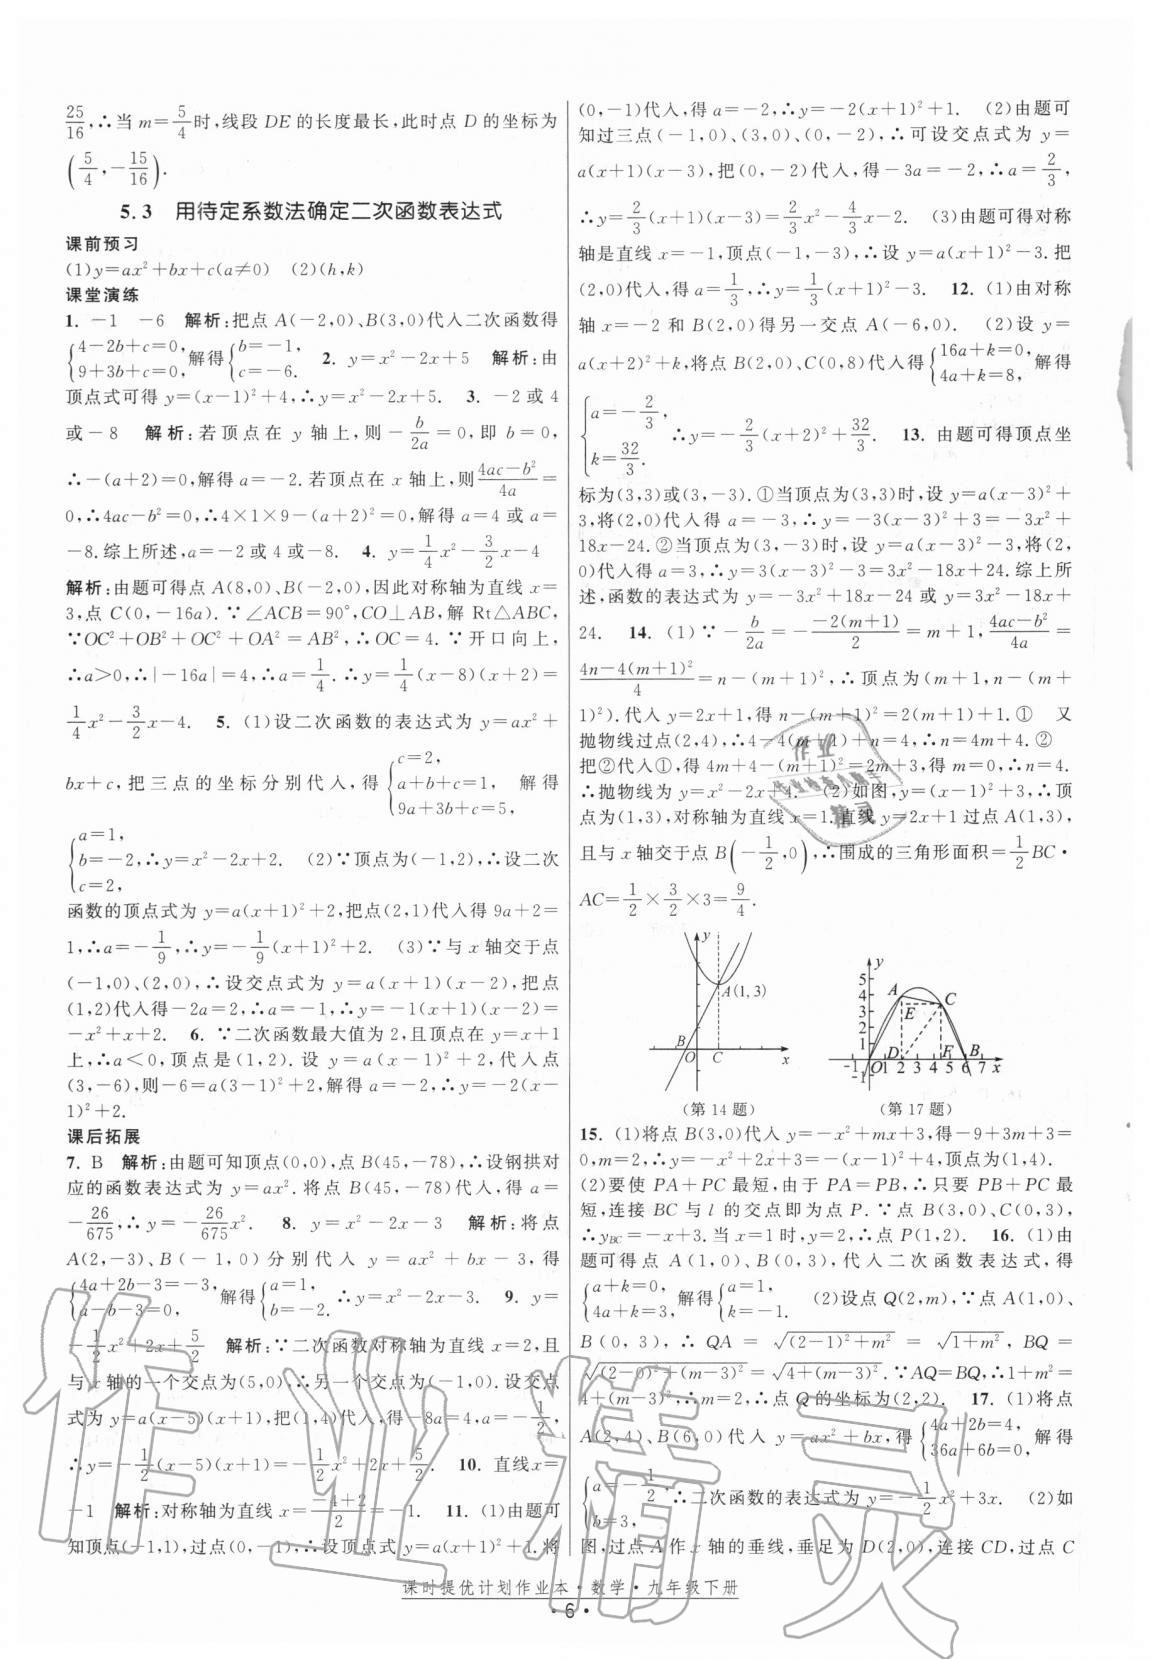 25/16,∴当 m=5/4时,线段 DE 的长度最长,此时点 D 的坐标为
(5/4,-15/16).
5.3 用待定系数法确定二次函数表达式
课前预习
(1)y=ax²+bx+c(a≠0) (2)(h,k)
课堂演练
1. -1 -6 解析:把点 A(-2,0)、B(3,0)代入二次函数得
{4-2b+c=0, 9+3b+c=0, 解得{b=-1, c=-6. 2. y=x²-2x+5 解析:由
顶点式可得 y=(x-1)²+4,∴y=x²-2x+5. 3. -2或4
或-8 解析:若顶点在 y 轴上,则-b/2a=0,即 b=0,
∴-(a+2)=0,解得 a=-2.若顶点在 x 轴上,则(4ac-b²)/4a=
0,∴4ac-b²=0,∴4×1×9-(a+2)²=0,解得 a=4 或 a=
-8.综上所述,a=-2或4或-8. 4. y=1/4x²-3/2x-4
解析:由题可得点 A(8,0)、B(-2,0),因此对称轴为直线 x=
3,点 C(0,-16a).∵∠ACB=90°,CO⊥AB,解 Rt△ABC,
∵OC²+OB²+OC²+OA²=AB²,∴OC=4.∵开口向上,
∴a>0,∴|-16a|=4,∴a=1/4.∴y=1/4(x-8)(x+2)=
1/4x²-3/2x-4. 5. (1)设二次函数的表达式为 y=ax²+
bx+c,把三点的坐标分别代入,得{c=2, a+b+c=1, 9a+3b+c=5, 解得
{a=1, b=-2, c=2, ∴y=x²-2x+2. (2)∵顶点为(-1,2),∴设二次
函数的顶点式为 y=a(x+1)²+2,把点(2,1)代入得 9a+2=
1,∴a=-1/9,∴y=-1/9(x+1)²+2. (3)∵与 x 轴交于点
(-1,0)、(2,0),∴设交点式为 y=a(x+1)(x-2),把点
(1,2)代入得-2a=2,∴a=-1,∴y=-1(x+1)(x-2)=
-x²+x+2. 6. ∵二次函数最大值为 2,且顶点在 y=x+1
上,∴a<0,顶点是(1,2).设 y=a(x-1)²+2,代入点
(3,-6),则-6=a(3-1)²+2,解得 a=-2,∴y=-2(x-
1)²+2.
课后拓展
7. B 解析:由题可知顶点(0,0),点 B(45,-78),∴设钢拱对
应的函数表达式为 y=ax².将点 B(45,-78)代入,得 a=
-26/675,∴y=-26/675x². 8. y=x²-2x-3 解析:将点
A(2,-3)、B(-1,0)分别代入 y=ax²+bx-3,得
{4a+2b-3=-3, a-b-3=0, 解得{a=1, b=-2. ∴y=x²-2x-3. 9. y=
-1/2x²+2x+5/2 解析:∵二次函数对称轴为直线 x=2,且
与 x 轴的一个交点为(5,0),∴另一个交点为(-1,0).设交点
式为 y=a(x-5)(x+1),把(1,4)代入,得-8a=4,∴a=-1/2,
∴y=-1/2(x-5)(x+1)=-1/2x²+2x+5/2. 10. 直线x=
-1 解析:对称轴为直线 x=(-4+2)/2=-1. 11. (1)由题可
知顶点(-1,1),过点(0,-1),∴设顶点式 y=a(x+1)²+1.将
(0,-1)代入,得 a=-2,∴y=-2(x+1)²+1. (2)由题可
知过三点(-1,0)、(3,0)、(0,-2),∴可设交点式为 y=
a(x+1)(x-3),把(0,-2)代入,得-3a=-2,∴a=2/3,
∴y=2/3(x+1)(x-3)=2/3x²-4/3x-2. (3)由题可得对称
轴是直线 x=-1,顶点(-1,-3),∴设 y=a(x+1)²-3.把
(2,0)代入,得 a=1/3,∴y=1/3(x+1)²-3. 12. (1)由对称
轴 x=-2 和 B(2,0)得另一交点 A(-6,0). (2)设 y=
a(x+2)²+k,将点 B(2,0)、C(0,8)代入得{16a+k=0, 4a+k=8, 解得
{a=-2/3, k=32/3. ∴y=-2/3(x+2)²+32/3. 13. 由题可得顶点坐
标为(3,3)或(3,-3).①当顶点为(3,3)时,设 y=a(x-3)²+
3,将(2,0)代入得 a=-3,∴y=-3(x-3)²+3=-3x²+
18x-24.②当顶点为(3,-3)时,设 y=a(x-3)²-3,将(2,
0)代入得 a=3,∴y=3(x-3)²-3=3x²-18x+24.综上所
述,函数的表达式为 y=-3x²+18x-24 或 y=3x²-18x+
24. 14. (1)∵-b/2a=-(-2(m+1))/2=m+1,(4ac-b²)/4a=
(4n-4(m+1)²)/4=n-(m+1)²,∴顶点为(m+1,n-(m+
1)²).代入 y=2x+1,得 n-(m+1)²=2(m+1)+1.① 又
抛物线过点(2,4),∴4-4(m+1)+n=4,∴n=4m+4.②
把②代入①,得 4m+4-(m+1)²=2m+3,得 m=0,∴n=4.
∴抛物线为 y=x²-2x+4. (2)如图,y=(x-1)²+3,∴顶
点为(1,3),对称轴为直线 x=1.直线 y=2x+1 过点 A(1,3),
且与 x 轴交于点 B(-1/2,0),∴围成的三角形面积=1/2BC·
AC=1/2×3/2×3=9/4.
y
A(1,3)
B
O
C
x
(第14题)
y
5
4
3
2
1
-1
A
C
E
D
F
B
-1 O 1 2 3 4 5 6 7 x
(第17题)
15. (1)将点 B(3,0)代入 y=-x²+mx+3,得-9+3m+3=
0,m=2,∴y=-x²+2x+3=-(x-1)²+4,顶点为(1,4).
(2)要使 PA+PC 最短,由于 PA=PB,∴只要 PB+PC 最
短,连接 BC 与 l 的交点即为点 P.∵点 B(3,0)、C(0,3),
∴y_BC=-x+3.当 x=1 时,y=2,∴点 P(1,2). 16. (1)由
题可得点 A(1,0)、B(0,3),代入二次函数表达式,得
{a+k=0, 4a+k=3, 解得{a=1, k=-1. (2)设点 Q(2,m),∵点 A(1,0)、
B(0,3),∴QA=√((2-1)²+m²)=√(1+m²),BQ=
√((2-0)²+(m-3)²)=√(4+(m-3)²).∵AQ=BQ,∴1+m²=
4+(m-3)²,∴m=2,∴点 Q 的坐标为(2,2). 17. (1)将点
A(2,4)、B(6,0)代入 y=ax²+bx,得{4a+2b=4, 36a+6b=0, 解得
{a=-1/2, b=3, ∴二次函数的表达式为 y=-1/2x²+3x. (2)如
图,过点 A 作 x 轴的垂线,垂足为 D(2,0),连接 CD,过点 C
课时提优计划作业本·数学·九年级下册
· 6 ·
作业精灵